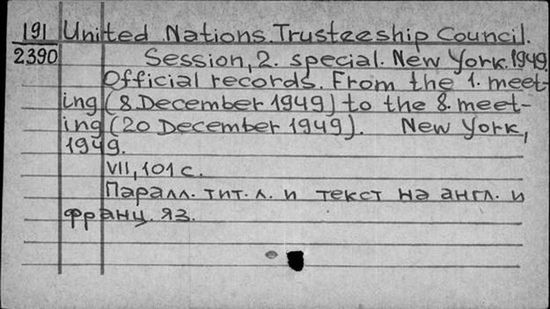 191 United Nations. Trusteeship Council.
2390 Session, 2. special. New York. 1949
Official records. From the 1. meet-
ing (8 December 1949) to the 8. meet-
ing (20 December 1949). New York,
1949.
VII, 101 с.
Паралл. тит. л. и текст на англ. и
франц. яз.